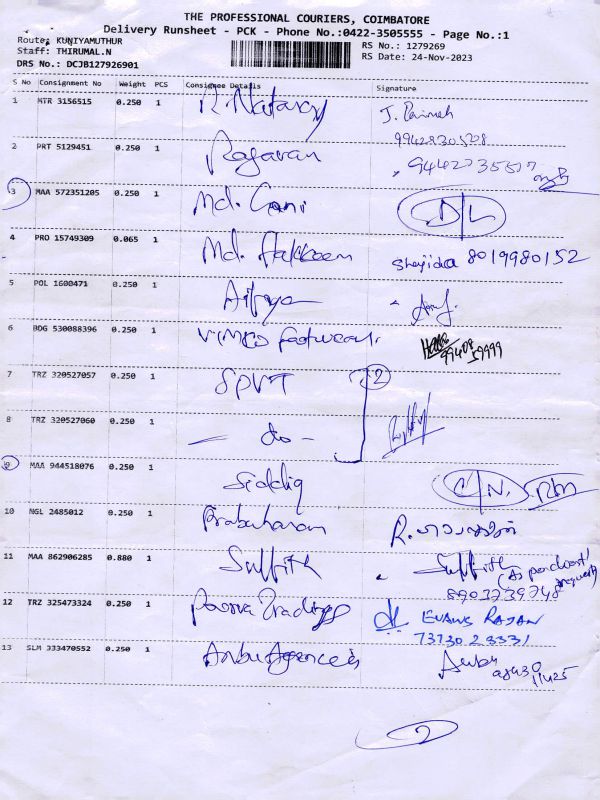 THE PROFESSIONAL COURIERS, COIMBATORE
Delivery Runsheet - PCK - Phone No.:0422-3505555 - Page No.:1
Route: KUNIYAMUTHUR
RS No.: 1279269
Staff: THIRUMAL.N
RS Date: 24-Nov-2023
DRS No.: DCJB127926901
S No Consignment No Weight PCS Consignee Details Signature
1 MTR 3156515 0.250 1 R. Nataraj
9942830528
2 PRT 5129451 0.250 1 Ragavan
3 MAA 572351205 0.250 1 Md. Gani D/L
4 PRO 15749309 0.065 1 Md. Hakkeem Shajidaa 8019980152
5 POL 1600471 0.250 1
6 BDG 530088396 0.250 1 VIMKO footwear
99409
59999
7 TRZ 320527057 0.250 1 SPVT 2
8 TRZ 320527060 0.250 1 - do -
9 MAA 944518076 0.250 1 Siddiq C/N. Rtn
10 NGL 2485012 0.250 1 Prabaharan
11 MAA 862906285 0.880 1 Sujith Sujith
8903739748
12 TRZ 325473324 0.250 1 Poorva Tradings EVANS RAJAN
73730 23331
13 SLM 333470552 0.250 1 Anbu Agencies Anbu
2